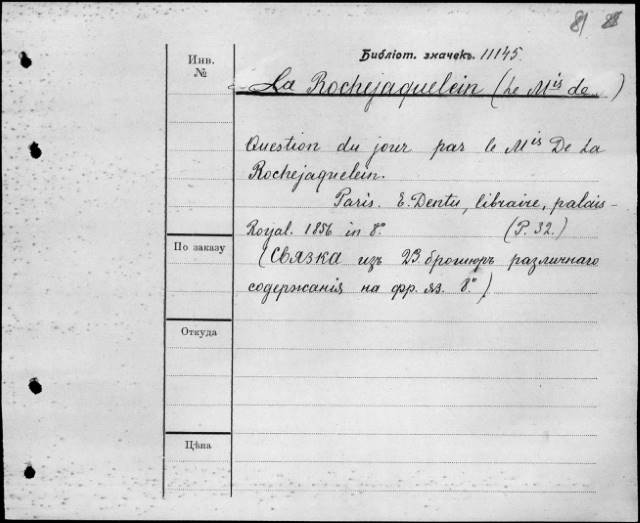 81
Инв.
№
Библіот. значекъ. 11145.
La Rochejaquelein (Le Mis de )
Question du jour par le Mis De La
Rochejaquelein.
Paris. E. Dentu, libraire, palais-
Royal. 1856 in 8° (P. 32.)
По заказу
(Связка изъ 23 брошюръ различнаго
содержанія на фр. яз. 8°)
Откуда
Цѣна